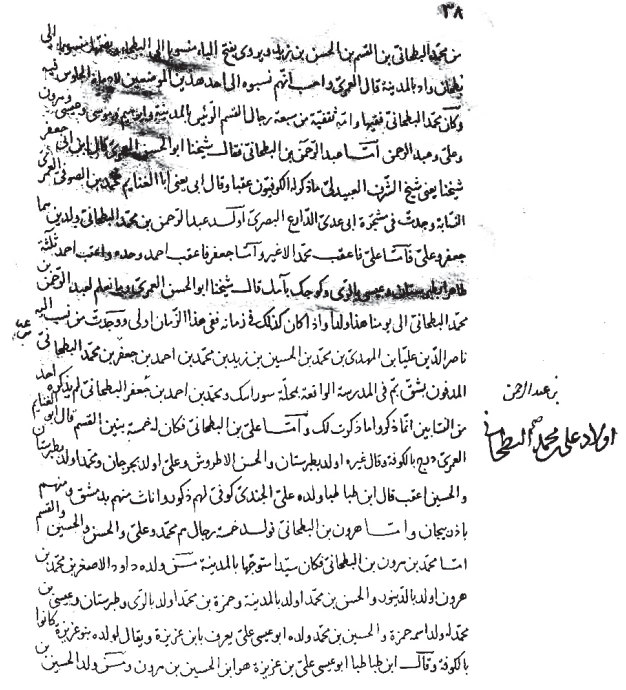 ٣٨
من محمد البطحانى بن القسم بن الحسن بن زيد ويروى بفتح الباء منسوبا الى البطحاء وبضمها منسوبا الى
بطحان واد بالمدينة قال العمرى واحسب انهم نسبوه الى احد هذين الموضعين لادمانه الجلوس فيه
وكان محمد البطحانى فقيها وامه ثقفية من سبعة رجال القسم الرئيس بالمدينة وابرهيم وموسى وعيسى وهرون
وعلى وعبد الرحمن امّا عبد الرحمن بن البطحانى فقال شيخنا ابو الحسن العمرى قال ابن ابى جعفر
شيخنا يعنى شيخ الشرف العبيدلى ما ذكر له الكوفيون عقبا وقال ابى يعنى ابا الغنايم محمد بن الصوفى العمرى
النسّابة وجدت فى مشجرة ابى عدى الذارع البصرى اولد عبد الرحمن بن محمد البطحانى ولدين هما
جعفر وعلى فامّا على فاعقب محمدا لا غير وامّا جعفر فاعقب احمد وحده واعقب احمد ثلثة
طاهر بطبرستان وعيسى بالرى وكوجك بآمل قال شيخنا ابو الحسن العمرى وما نعلم لعبد الرحمن بن
محمد البطحانى الى يومنا هذا ولدا واذا كان كذلك فى زمانه ففى هذا الزمان اولى ووجدت من نسب اليه
ناصر الدين عليا بن المهدى بن محمد بن الحسين بن زيد بن محمد بن احمد بن جعفر بن محمد البطحانى
المدفون بشق بم فى المدرسة الواقعة بمحلة سورانيك ومحمد بن احمد بن جعفر البطحانى لم يذكره احد
من النسابين انما ذكروا ما ذكرت لك وامّا على بن البطحانى فكان له خمسة بنين القسم قال ابو الغنايم
العمرى درج بالكوفة وقال غيره اولد بطبرستان والحسن الاطروش وعلى اولد بجرجان ومحمد اولد بطبرستان
والحسين اعقب قال ابن طباطبا ولده على الجندى كوفى لهم ذكور واناث منهم بدمشق ومنهم
باذربيجان وامّا هرون بن البطحانى فولد خمسة رجال هم محمد وعلى والحسن والحسين والقسم
امّا محمد بن هرون بن البطحانى فكان سيدا متوجها بالمدينة فمن ولده داود الاصغر بن محمد بن
هرون اولد بالدينور والحسن بن محمد اولد بالمدينة وحمزة بن محمد اولد بالرى وطبرستان وعيسى بن
محمد اولد اسمه حمزة والحسين بن محمد ولده ابو عيسى على يعرف بابن عزيزة ويقال لولده بنو عزيزة كانوا
بالكوفة وقال ابن طباطبا ابو عيسى على بن عزيزة هو ابن الحسين بن هرون ومن ولد الحسين بن
بن عبد الرحمن
اولاد على بن محمد البطحانى